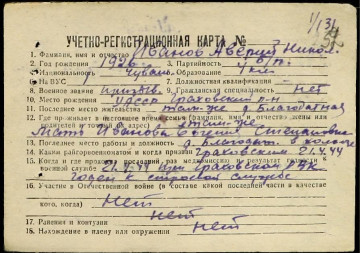 УЧЕТНО-РЕГИСТРАЦИОННАЯ КАРТА №
1. Фамилия, имя и отчество Иванов Аверий Никол.
2. Год рождения 1926 3. Партийность б/п.
4. Национальность 5. Образование 4 кл.
6. На ВУС 7. Должностная квалификация -
8. Военное звание 9. Гражданская специальность нет
10. Место рождения УАССР Граховский р-н
11. Последнее место жительства там-же д. Благодатная
12. Где проживает в настоящее время семья (фамилия, имя, и отчество жены или родителей и адрес) там-же
Мать Иванова Евгения Степановна
13. Последнее место работы и должность д. Благодат. в колхозе
14. Каким райгорвоенкоматом и когда призван Граховским 21.4.44
15. Когда и где проходил последний раз медкомиссию и результат годности к военной службе 21.4.44 при Граховском РВК
Годен к строевой службе
16. Участие в Отечественной войне (в составе какой последней части в качестве кого, когда) нет
17. Ранения и контузии нет
18. Нахождение в плену или окружении нет